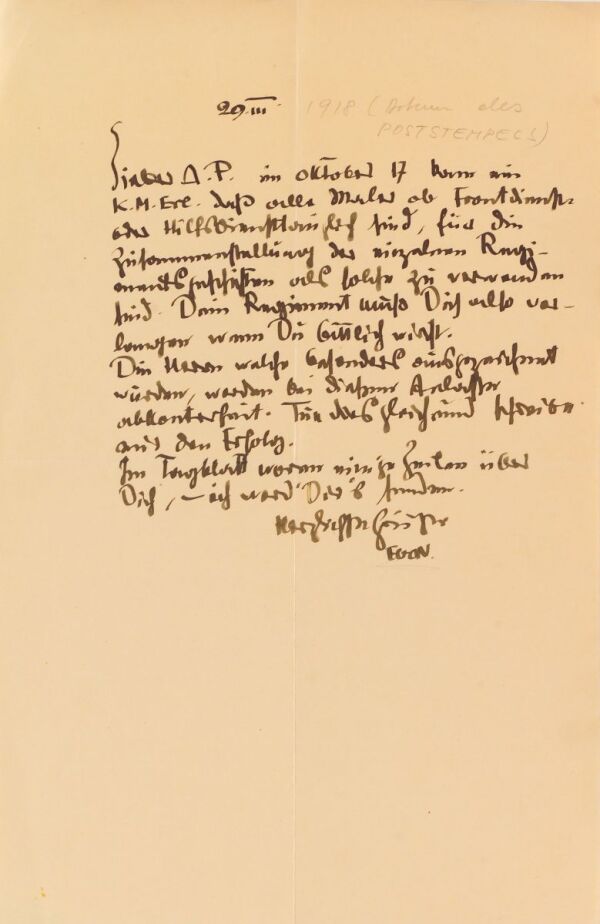 29.III. 1918 (Datum des
POSTSTEMPELS)
Lieber A. P. im Oktober 17 kam ein
K.M. Erl. daß alle Maler ob Frontdienst-
oder Hilfsdiensttauglich sind, für die
Zusammenstellung der einzelnen Regi-
mentsgeschichten als solche zu verwenden
sind. Dein Regiment muß Dich also ver-
langen wenn Du bittlich wirst.
Die Herren welche besonders ausgezeichnet
wurden, werden bei diesem Anlasse
abkonterfeit. Tue das gleich und schreibe
mir den Erfolg.
Im Tagblatt waren einige Zeilen über
Dich, – ich werd Dir's senden.
Herzlichste Grüße
EGON.